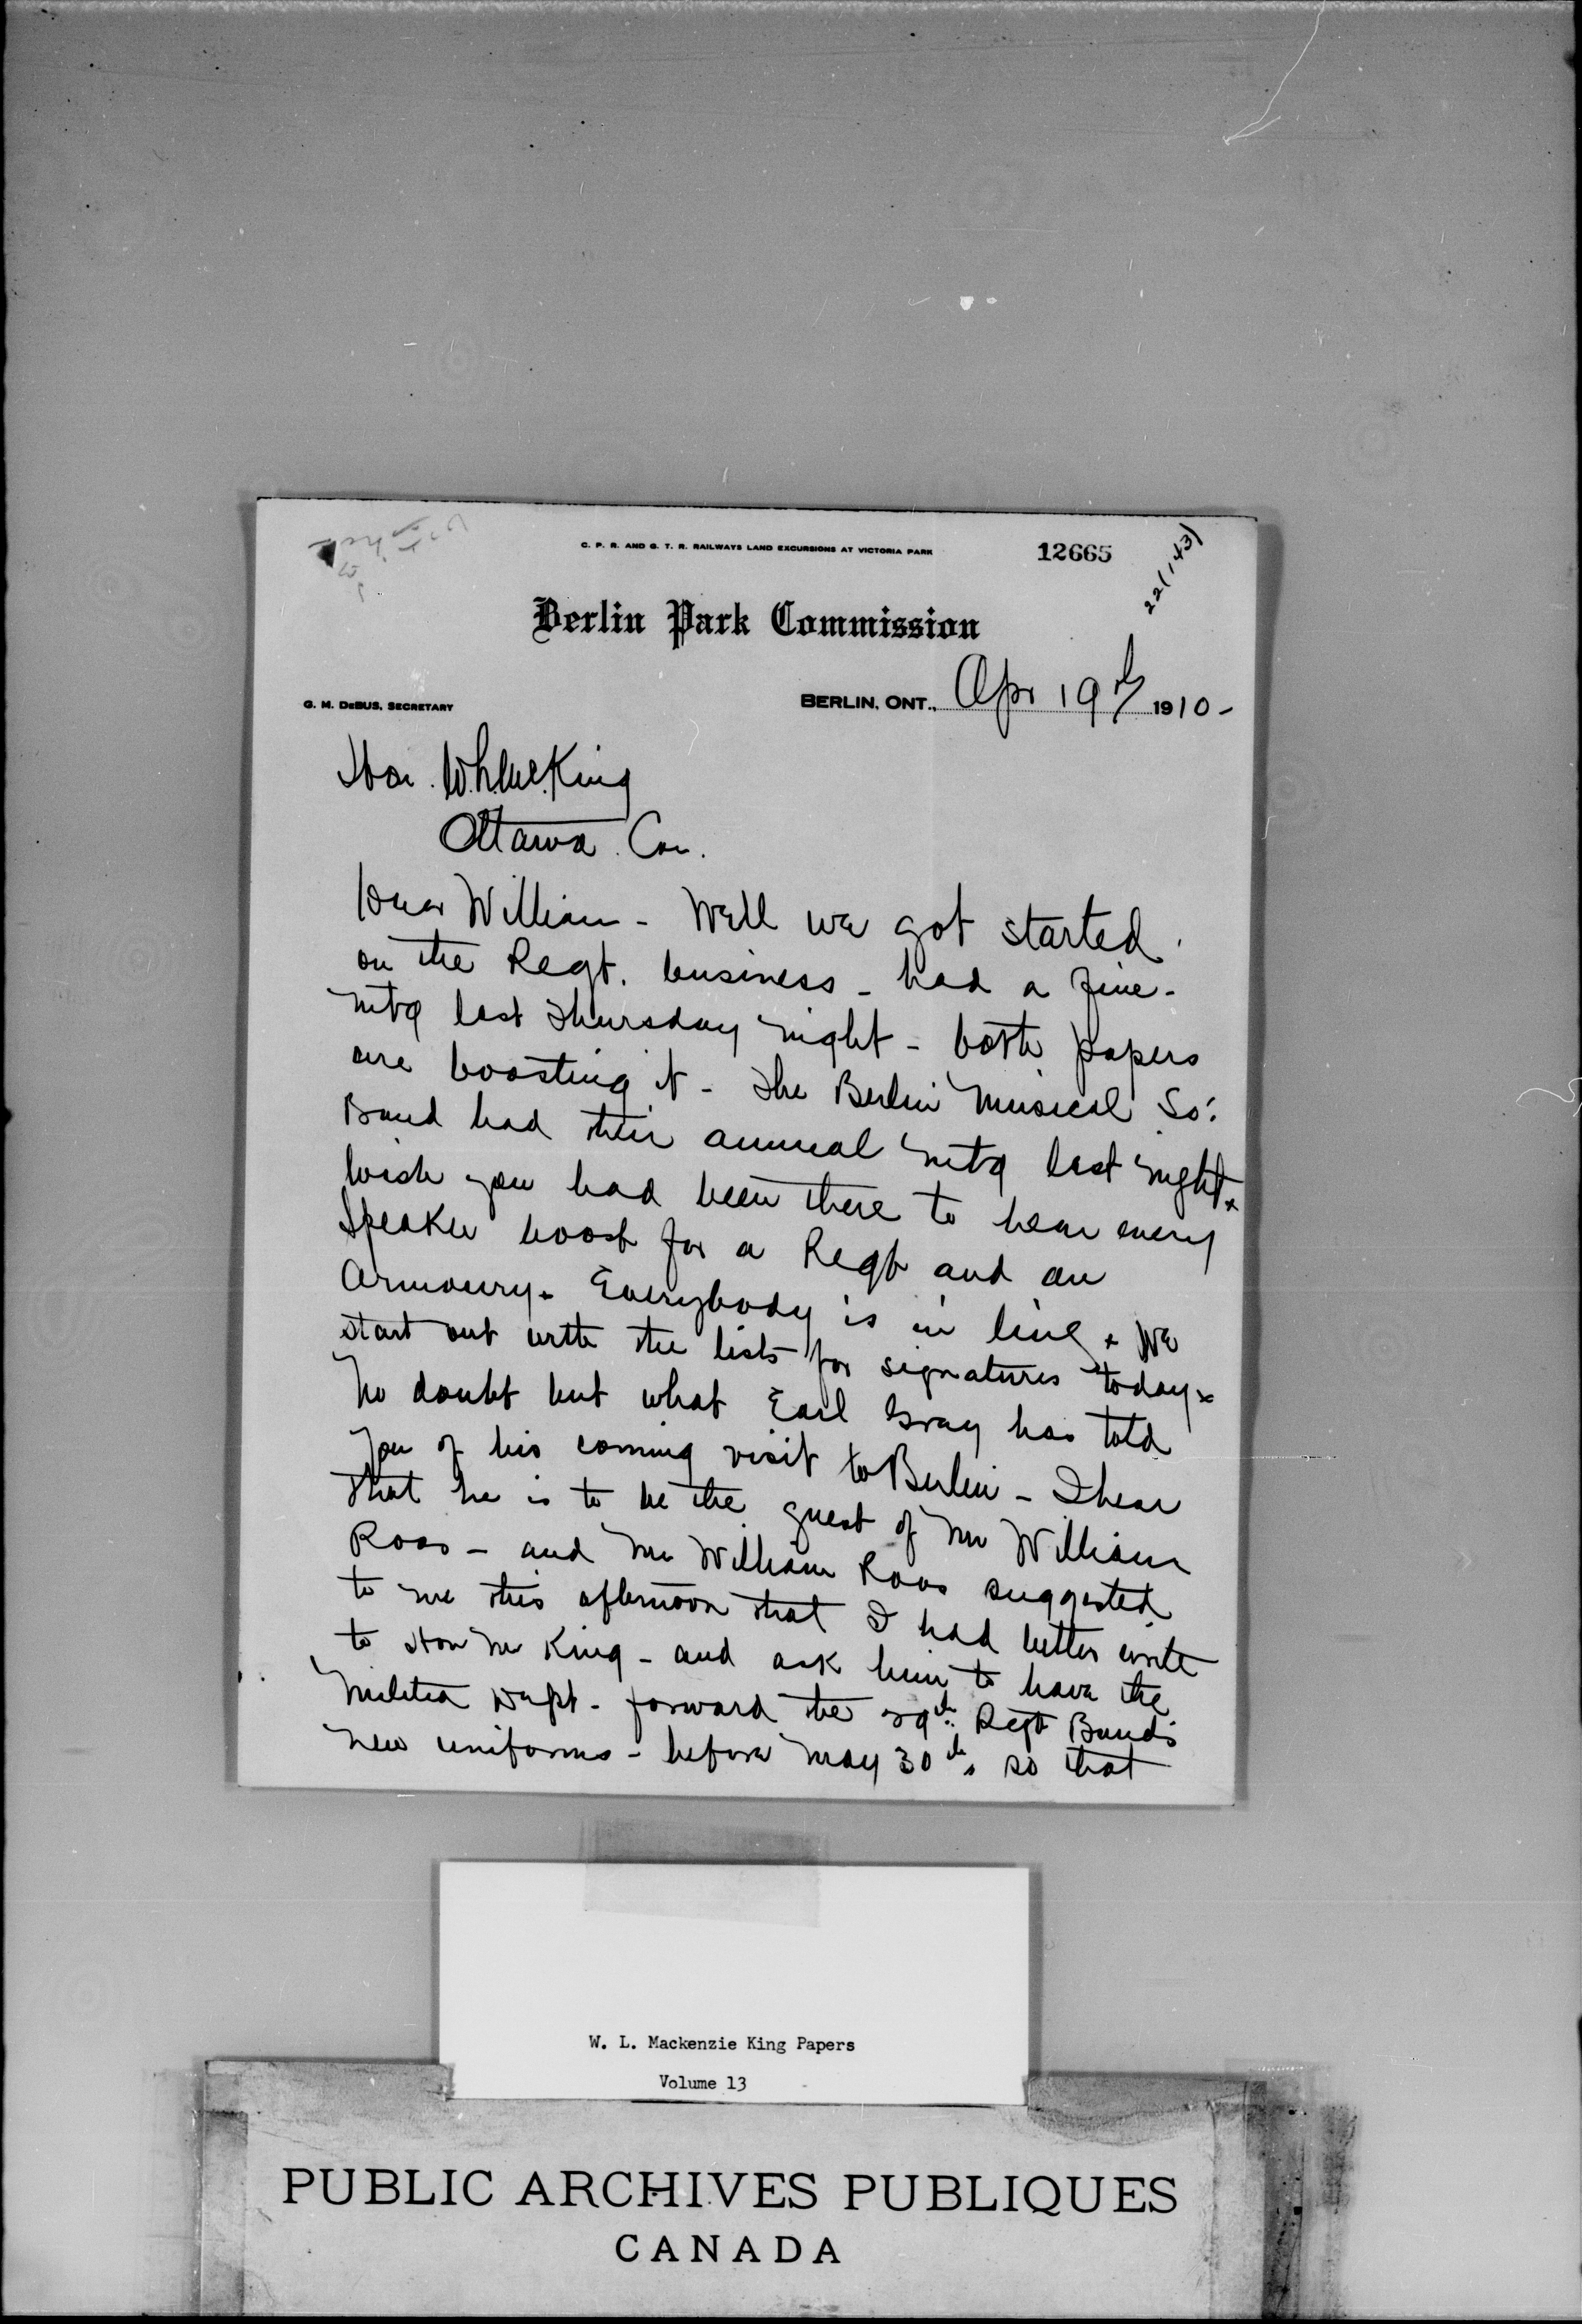 C. P. R. AND G. T. R. RAILWAYS LAND EXCURSIONS AT VICTORIA PARK
12665
22(143)
Berlin Park Commission
G. M. DEBUS, SECRETARY
BERLIN, ONT., Apr 19th 1910-
Hon. W.L.McKing
Ottawa. Can.
Dear William - Well we got started
on the Regt. business - had a fine -
mtg last Thursday night - both papers
are boosting it - The Berlin Musical So:
Band had their annual mtg last night.
Wish you had been there to hear every
Speaker boost for a Regt and an
Armoury. Everybody is in line. We
start out with the lists for signatures today.
No doubt but what Earl Gray has told
you of his coming visit to Berlin - I hear
that he is to be the guest of Mr William
Roos - and Mr William Roos suggested
to me this afternoon that I had better write
to Hon Mr King - and ask him to have the
Militia Dept - forward the 29th Regt Band's
new uniforms - before May 30th, so that
W. L. Mackenzie King Papers
Volume 13
PUBLIC ARCHIVES PUBLIQUES
CANADA